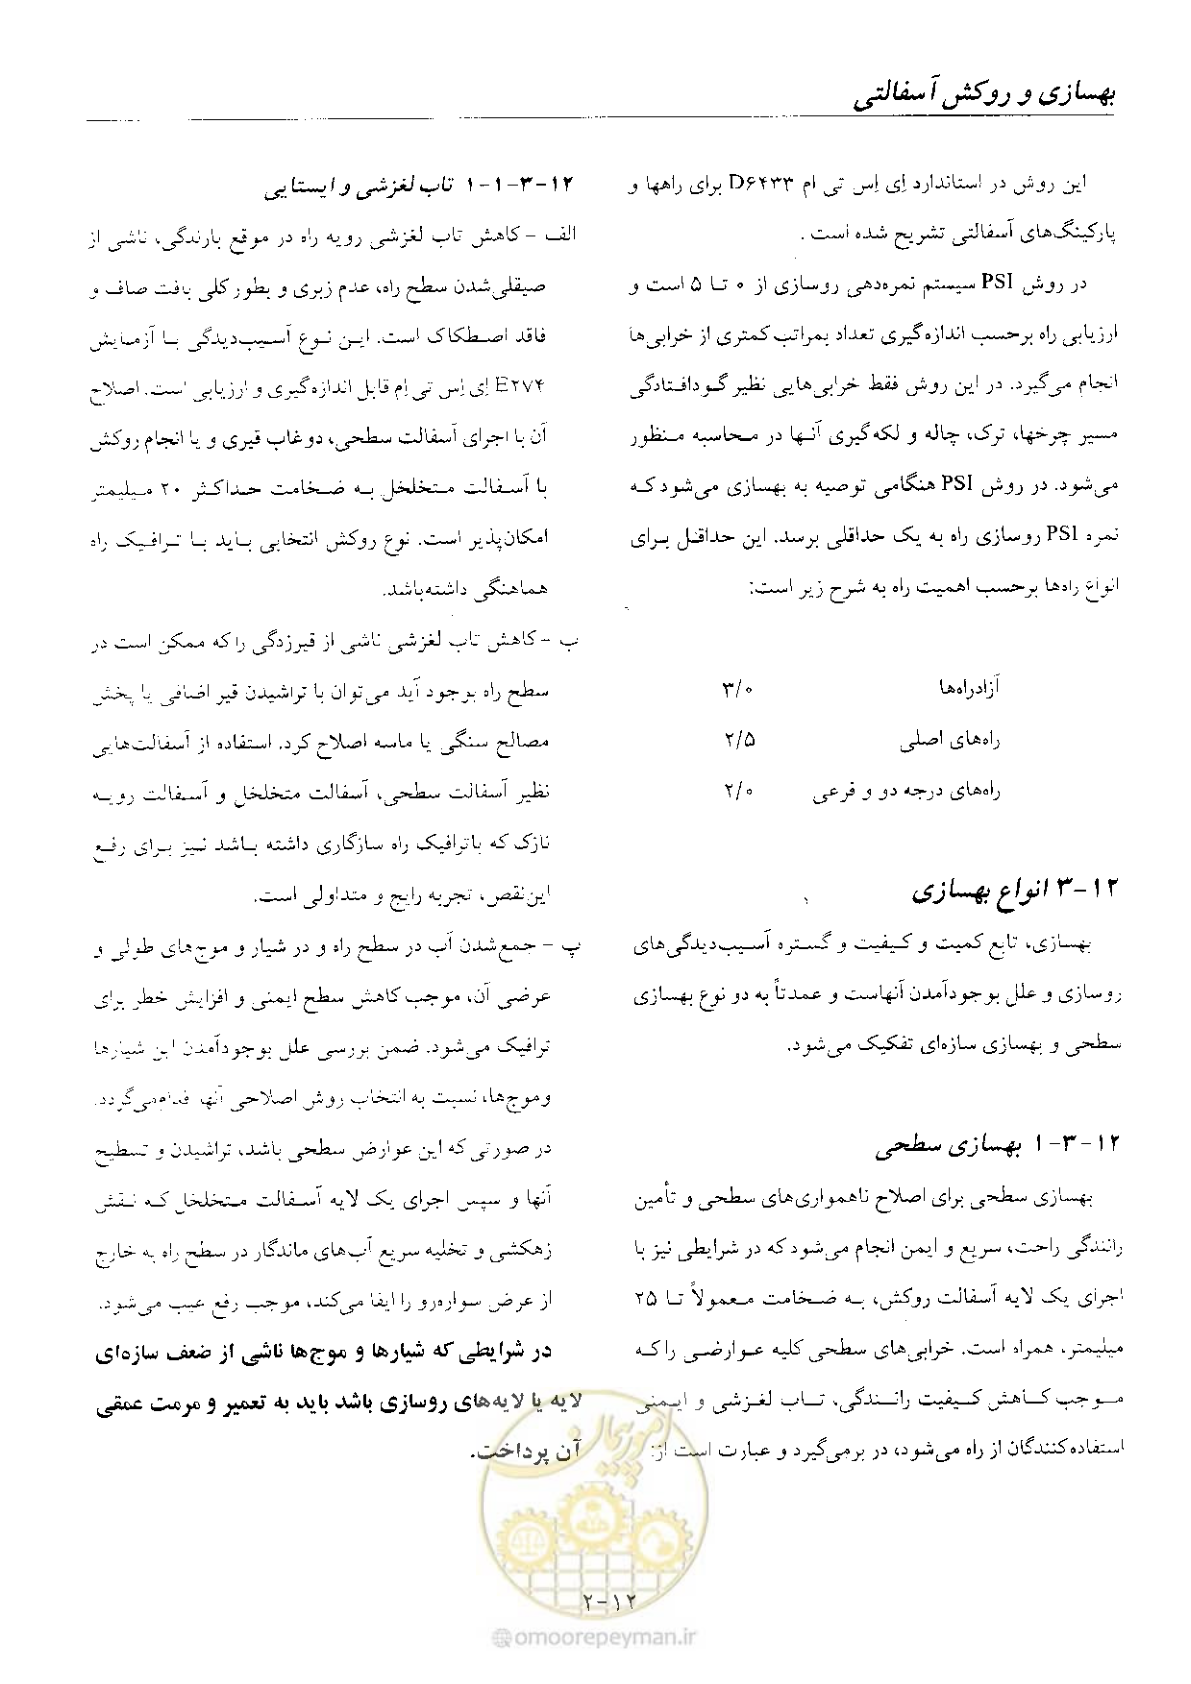 بهسازی و روکش آسفالتی
این روش در استاندارد اِی اِس تی ام D۶۴۳۳ برای راهها و
پارکینگ‌های آسفالتی تشریح شده است .
در روش PSI سیستم نمره‌دهی روسازی از ۰ تا ۵ است و
ارزیابی راه برحسب اندازه‌گیری تعداد بمراتب کمتری از خرابی‌ها
انجام می‌گیرد. در این روش فقط خرابی‌هایی نظیر گودافتادگی
مسیر چرخها، ترک، چاله و لکه‌گیری آنها در محاسبه منظور
می‌شود. در روش PSI هنگامی توصیه به بهسازی می‌شود که
نمره PSI روسازی راه به یک حداقلی برسد. این حداقل برای
انواع راه‌ها برحسب اهمیت راه به شرح زیر است:
آزادراه‌ها ۳/۰
راه‌های اصلی ۲/۵
راه‌های درجه دو و فرعی ۲/۰
۱۲-۳ انواع بهسازی
بهسازی، تابع کمیت و کیفیت و گستره آسیب‌دیدگی‌های
روسازی و علل بوجودآمدن آنهاست و عمدتاً به دو نوع بهسازی
سطحی و بهسازی سازه‌ای تفکیک می‌شود.
۱۲-۳-۱ بهسازی سطحی
بهسازی سطحی برای اصلاح ناهمواری‌های سطحی و تأمین
رانندگی راحت، سریع و ایمن انجام می‌شود که در شرایطی نیز با
اجرای یک لایه آسفالت روکش، به ضخامت معمولاً تا ۲۵
میلیمتر، همراه است. خرابی‌های سطحی کلیه عوارضی را که
موجب کاهش کیفیت رانندگی، تاب لغزشی و ایمنی
استفاده‌کنندگان از راه می‌شود، در برمی‌گیرد و عبارت است از:
۱۲-۳-۱-۱ تاب لغزشی و ایستایی
الف - کاهش تاب لغزشی رویه راه در موقع بارندگی، ناشی از
صیقلی‌شدن سطح راه، عدم زبری و بطور کلی بافت صاف و
فاقد اصطکاک است. این نوع آسیب‌دیدگی با آزمایش
E۲۷۴ اِی اِس تی اِم قابل اندازه‌گیری و ارزیابی است. اصلاح
آن با اجرای آسفالت سطحی، دوغاب قیری و یا انجام روکش
با آسفالت متخلخل به ضخامت حداکثر ۲۰ میلیمتر
امکان‌پذیر است. نوع روکش انتخابی باید با ترافیک راه
هماهنگی داشته‌باشد.
ب - کاهش تاب لغزشی ناشی از قیرزدگی را که ممکن است در
سطح راه بوجود آید می‌توان با تراشیدن قیر اضافی یا پخش
مصالح سنگی یا ماسه اصلاح کرد. استفاده از آسفالت‌هایی
نظیر آسفالت سطحی، آسفالت متخلخل و آسفالت رویه
نازک که باترافیک راه سازگاری داشته باشد نیز برای رفع
این‌نقص، تجربه رایج و متداولی است.
پ - جمع‌شدن آب در سطح راه و در شیار و موج‌های طولی و
عرضی آن، موجب کاهش سطح ایمنی و افزایش خطر برای
ترافیک می‌شود. ضمن بررسی علل بوجودآمدن این شیارها
و موج‌ها، نسبت به انتخاب روش اصلاحی آنها اقدام‌می‌گردد.
در صورتی که این عوارض سطحی باشد، تراشیدن و تسطیح
آنها و سپس اجرای یک لایه آسفالت متخلخل که نقش
زهکشی و تخلیه سریع آب‌های ماندگار در سطح راه به خارج
از عرض سواره‌رو را ایفا می‌کند، موجب رفع عیب می‌شود.
در شرایطی که شیارها و موج‌ها ناشی از ضعف سازه‌ای
لایه یا لایه‌های روسازی باشد باید به تعمیر و مرمت عمقی
آن پرداخت.
امور پیمان
۱۲-۲
@omoorepeyman.ir